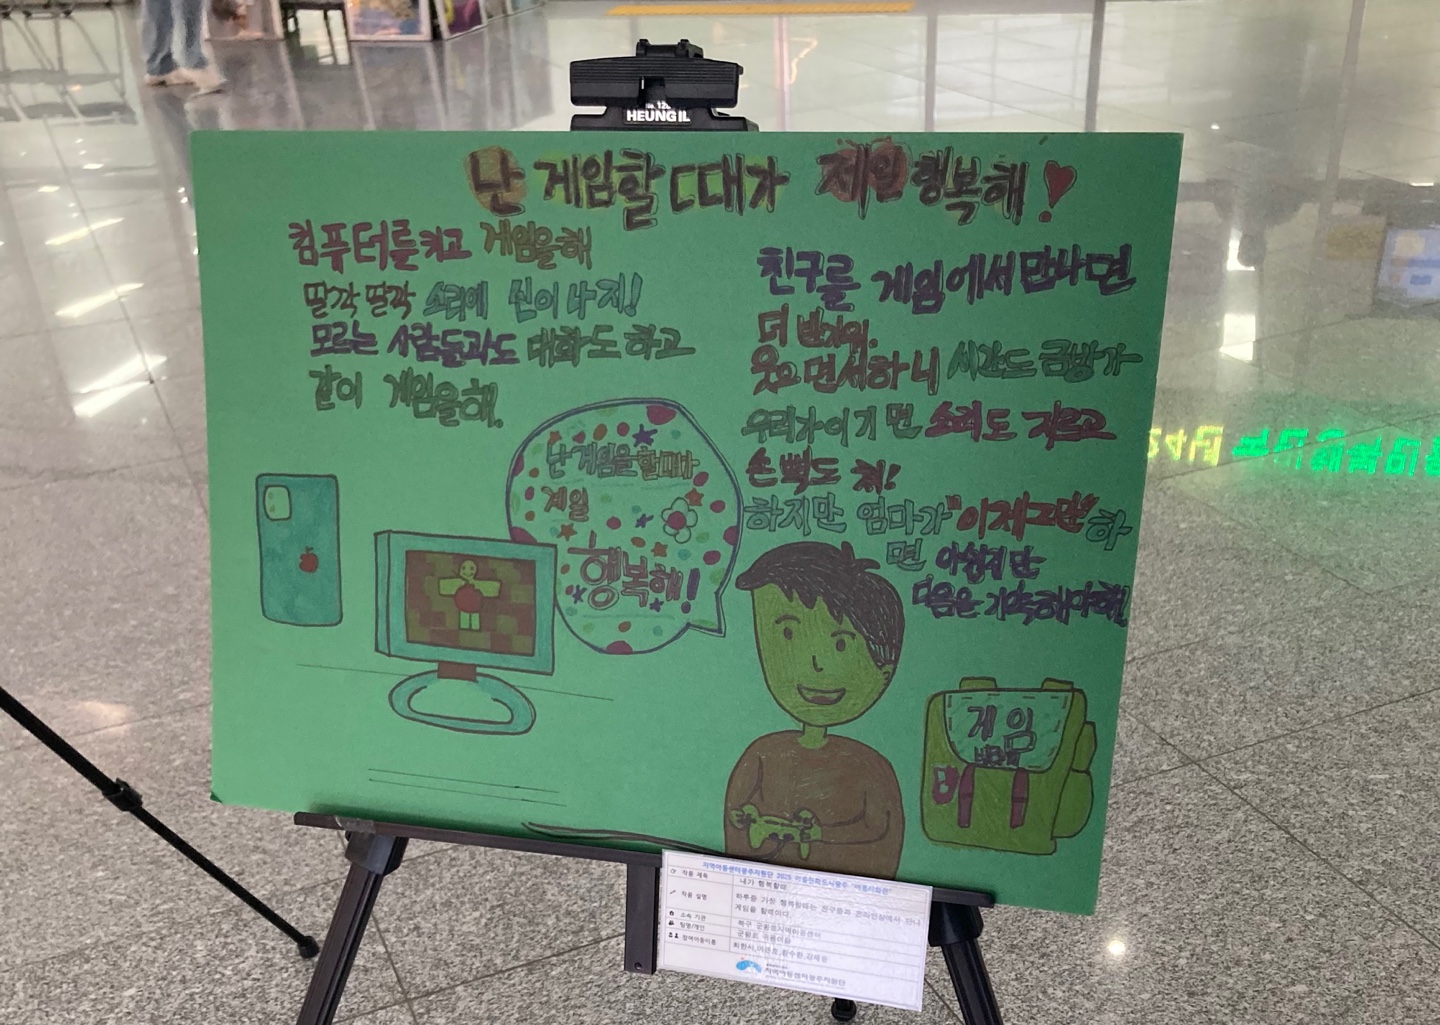 HEUNG IL
난 게임할 때가 제일 행복해!
컴퓨터를 키고 게임을 해
딸각 딸각 소리에 신이 나지!
모르는 사람들과도 대화도 하고
같이 게임을 해.
친구를 게임에서 만나면
더 반가워.
웃으면서 하니 시간도 금방 가
우리가 이기면 소리도 지르고
손뼉도 쳐!
하지만 엄마가 "이제그만" 하
면 아쉽지만
다음은 기약해야해!
난 게임을 할때가
제일
행복해!!
게임
작품 제목 내가 행복할때
작품 설명 하루중 가장 행복할때는 친구들과 온라인상에서 만나
게임을 할때이다
소속 기관
팀명/개인
참여아동이름
지역아동센터광주지원단